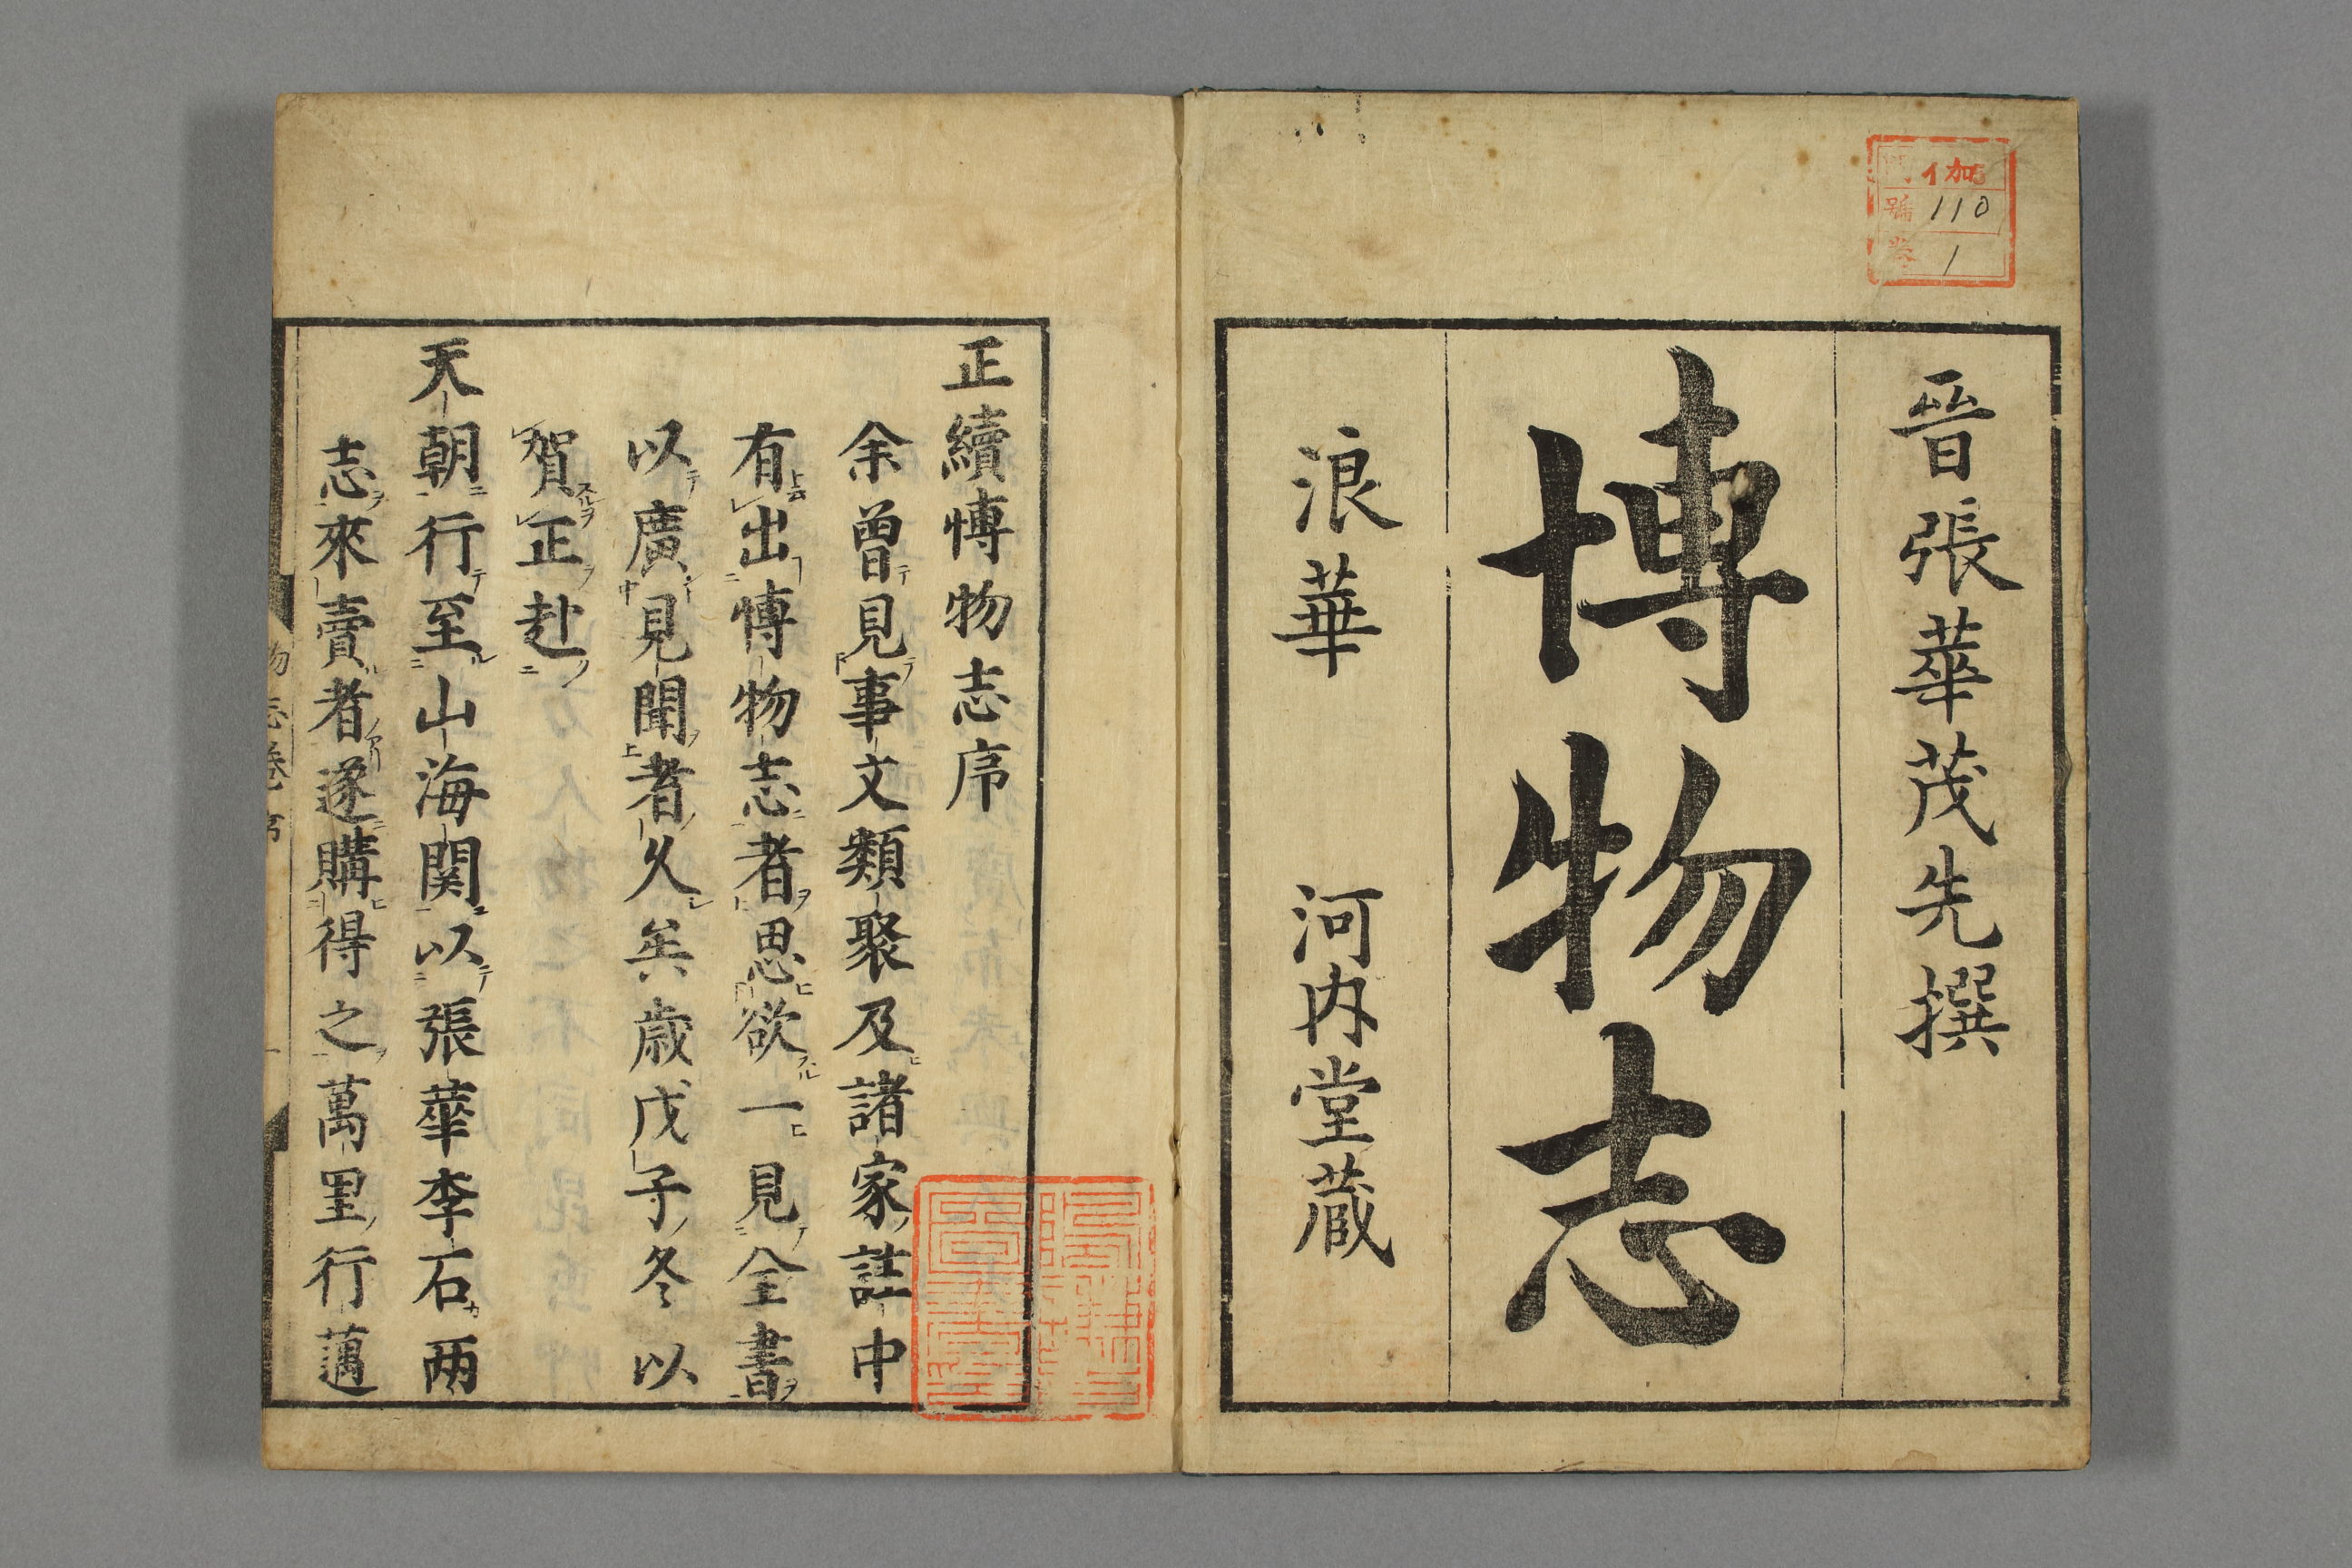 伽
號 110
1
晉張華茂先撰
博物志
浪華 河内堂蔵
正續博物志序
余曽見事文類聚及諸家註中
有出博物志者思欲一見全書
以廣見聞者久矣歳戊子冬以
賀正赴
天朝行至山海関以張華李石两
志來賣者遂購得之萬里行邁
物志卷 序